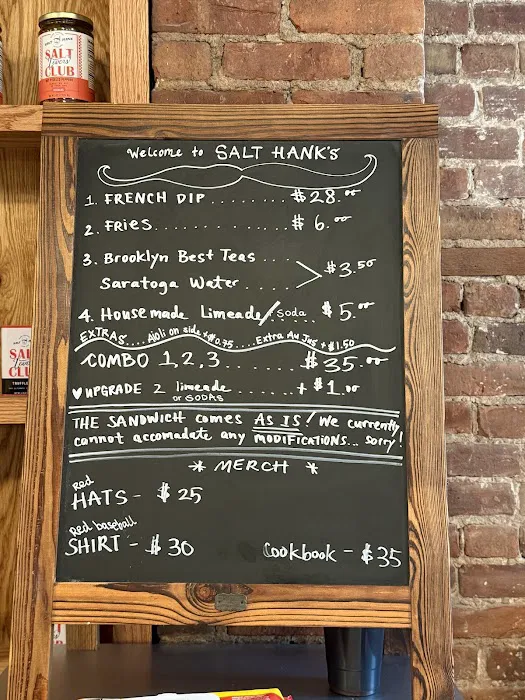 SALT
Lovers'
CLUB
Welcome to SALT HANK'S
1. FRENCH DIP........ $28.00
2. FRIES............. $6.00
3. Brooklyn Best Teas ....
Saratoga Water .... $3.50
4. Housemade Limeade/Soda $5.00
EXTRAS....Aioli on side +$0.75.....Extra Au Jus +$1.50
COMBO 1,2,3 ........ $35.00
♥ UPGRADE 2 limeade ........ + $1.00
OR SODAS
THE SANDWICH comes AS IS! We currently
cannot accomadate any MODIFICATIONS... sorry!
* MERCH *
red
HATS - $25
red baseball
SHIRT - $30 Cookbook - $35